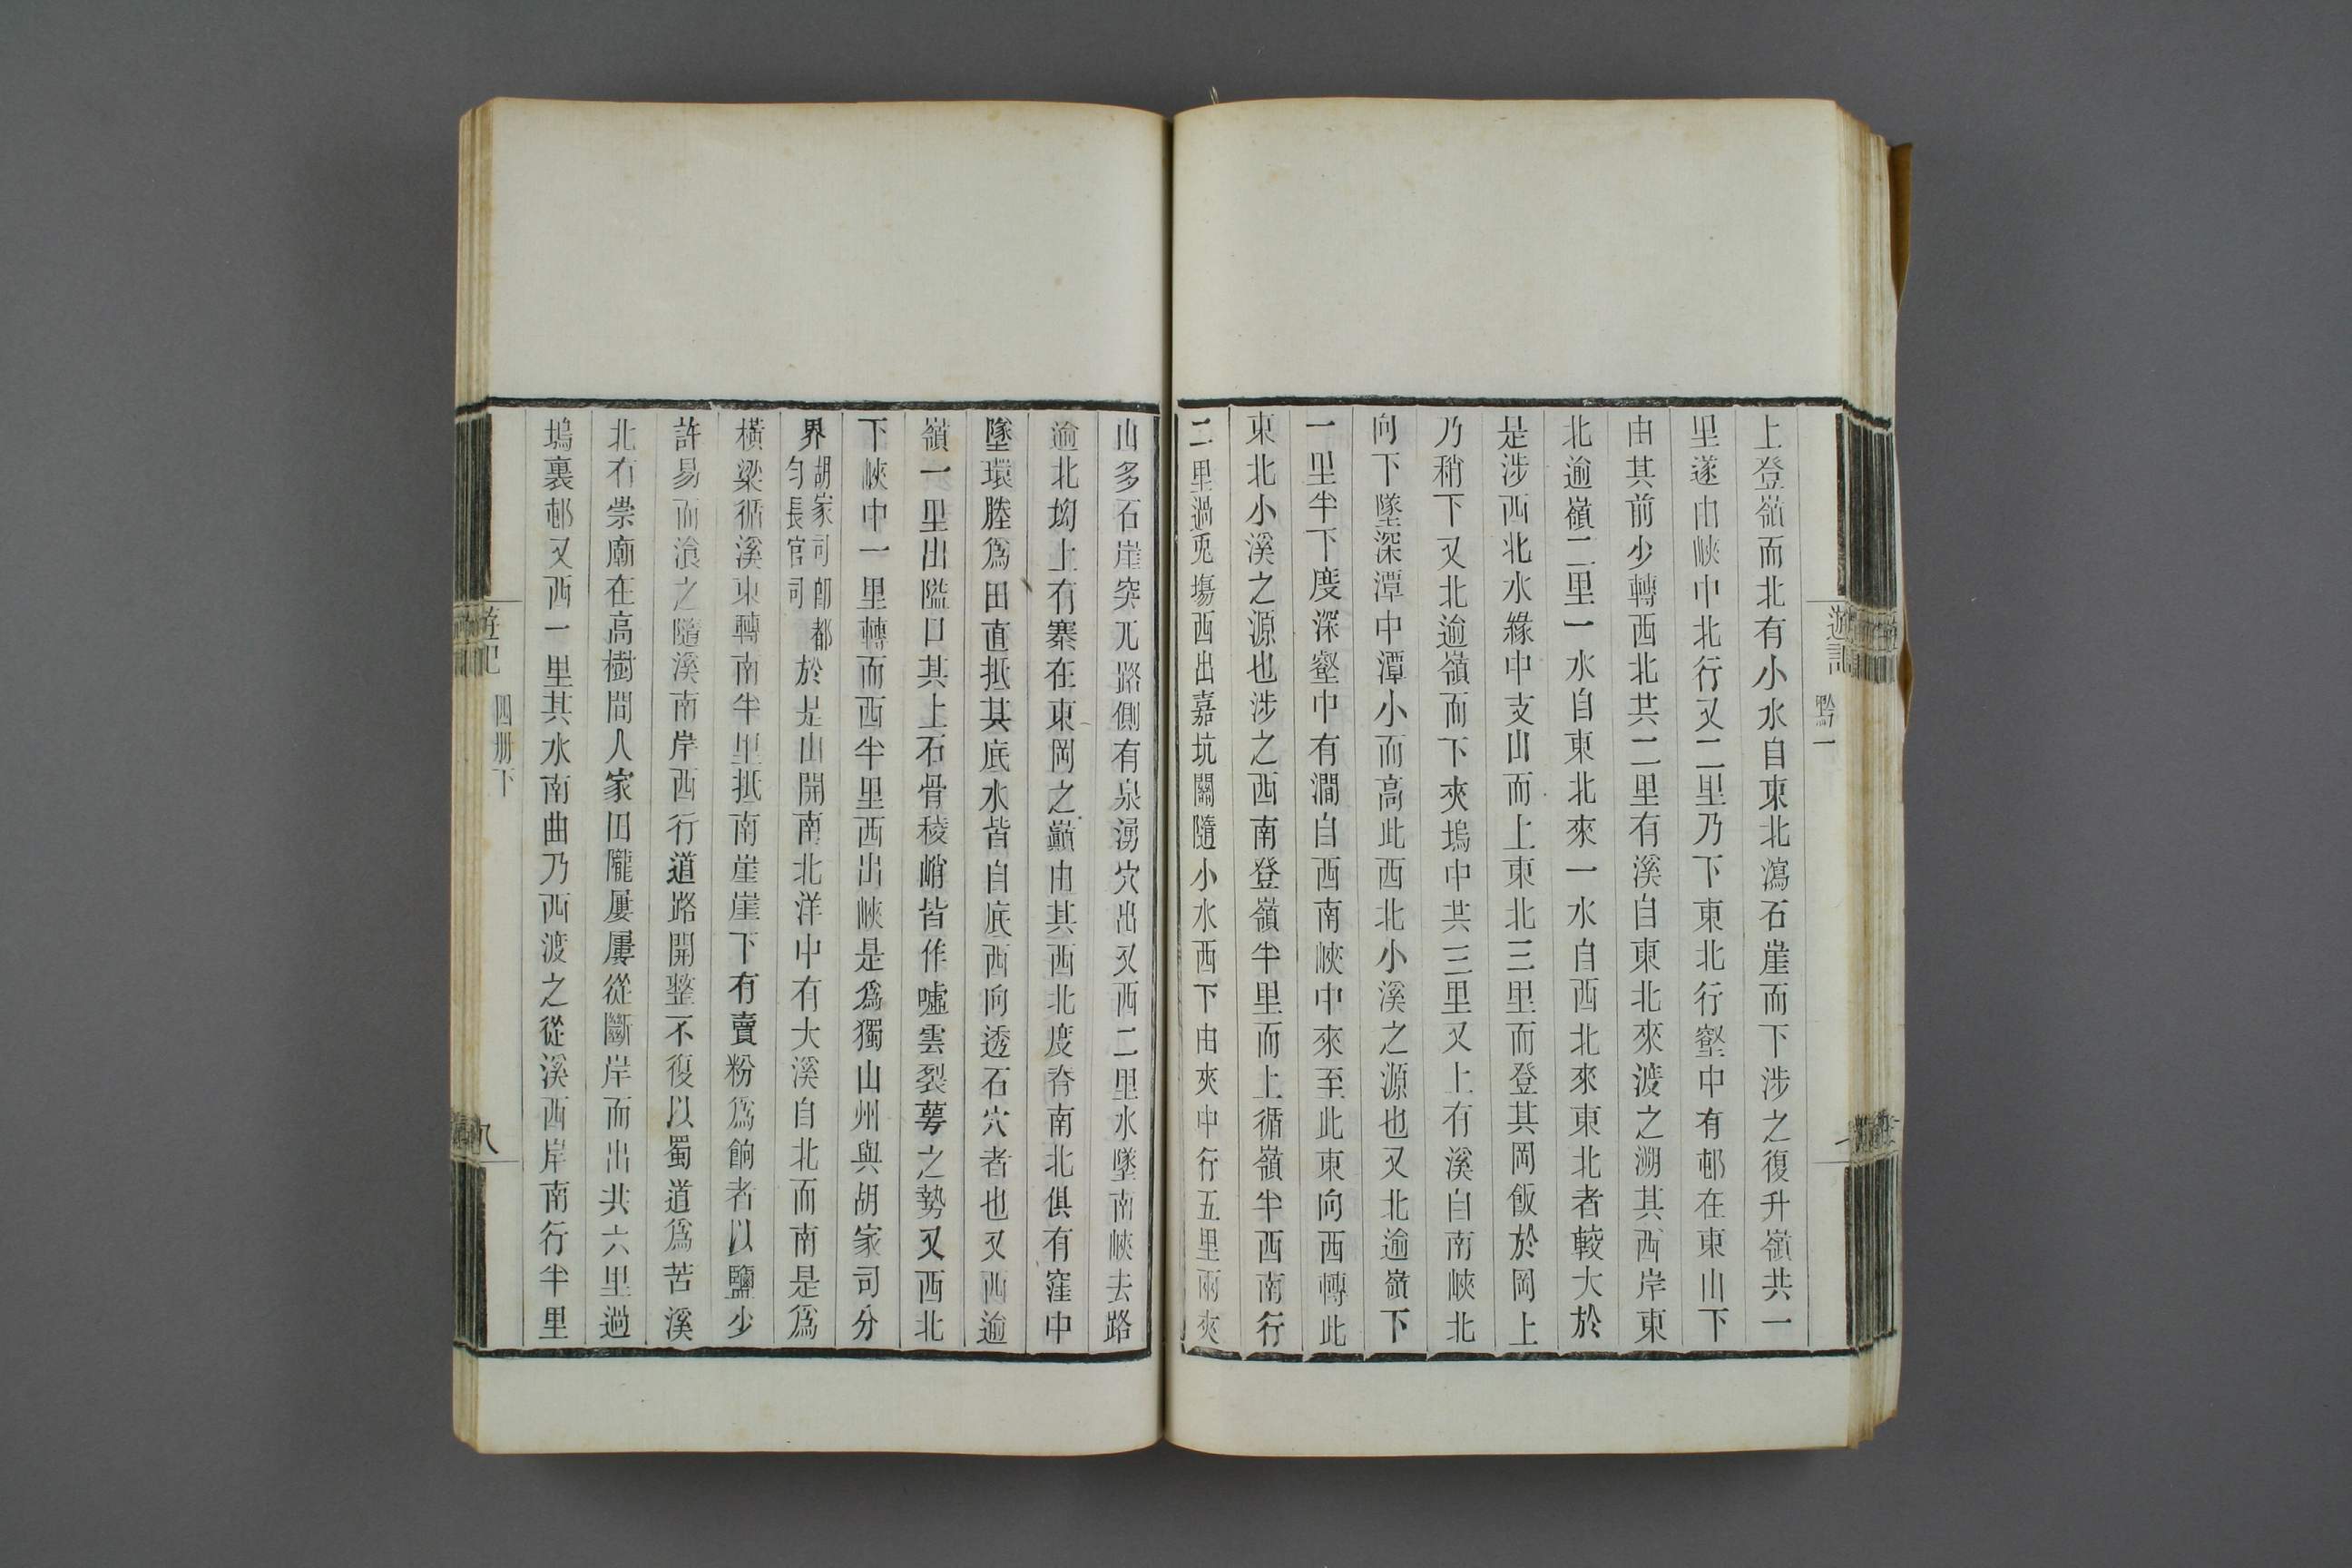 遊記
黔一
上登嶺而北有小水自東北瀉石崖而下涉之復升嶺共一
里遂由峽中北行又二里乃下東北行壑中有邨在東山下
由其前少轉西北共二里有溪自東北來渡之溯其西岸東
北逾嶺二里一水自東北來一水自西北來東北者較大於
是涉西北水緣中支山而上東北三里而登其岡飯於岡上
乃稍下又北逾嶺而下夾塢中共三里又上有溪自南峽北
向下墜深潭中潭小而高此西北小溪之源也又北逾嶺下
一里半下度深壑中有澗自西南峽中來至此東向西轉此
東北小溪之源也涉之西南登嶺半里而上循嶺半西南行
二里過兎塲西出嘉坑關隨小水西下由夾中行五里兩夾
山多石崖突兀路側有泉湧穴出又西二里水墜南峽去路
逾北坳上有寨在東岡之巔由其西北度脊南北俱有窪中
墜環塍爲田直抵其底水皆自底西向透石穴者也又西逾
嶺一里出隘口其上石骨稜峭皆作噓雲裂萼之勢又西北
下峽中一里轉而西半里西出峽是爲獨山州與胡家司分
界胡家司即都勻長官司於是山開南北洋中有大溪自北而南是爲
橫梁循溪東轉南半里抵南崖崖下有賣粉爲餉者以鹽少
許易而湌之隨溪南岸西行道路開整不復以蜀道爲苦溪
北有崇廟在高樹間人家田隴屢屢從斷岸而出共六里過
塢裏邨又西一里其水南曲乃西渡之從溪西岸南行半里
遊記
四册下
八